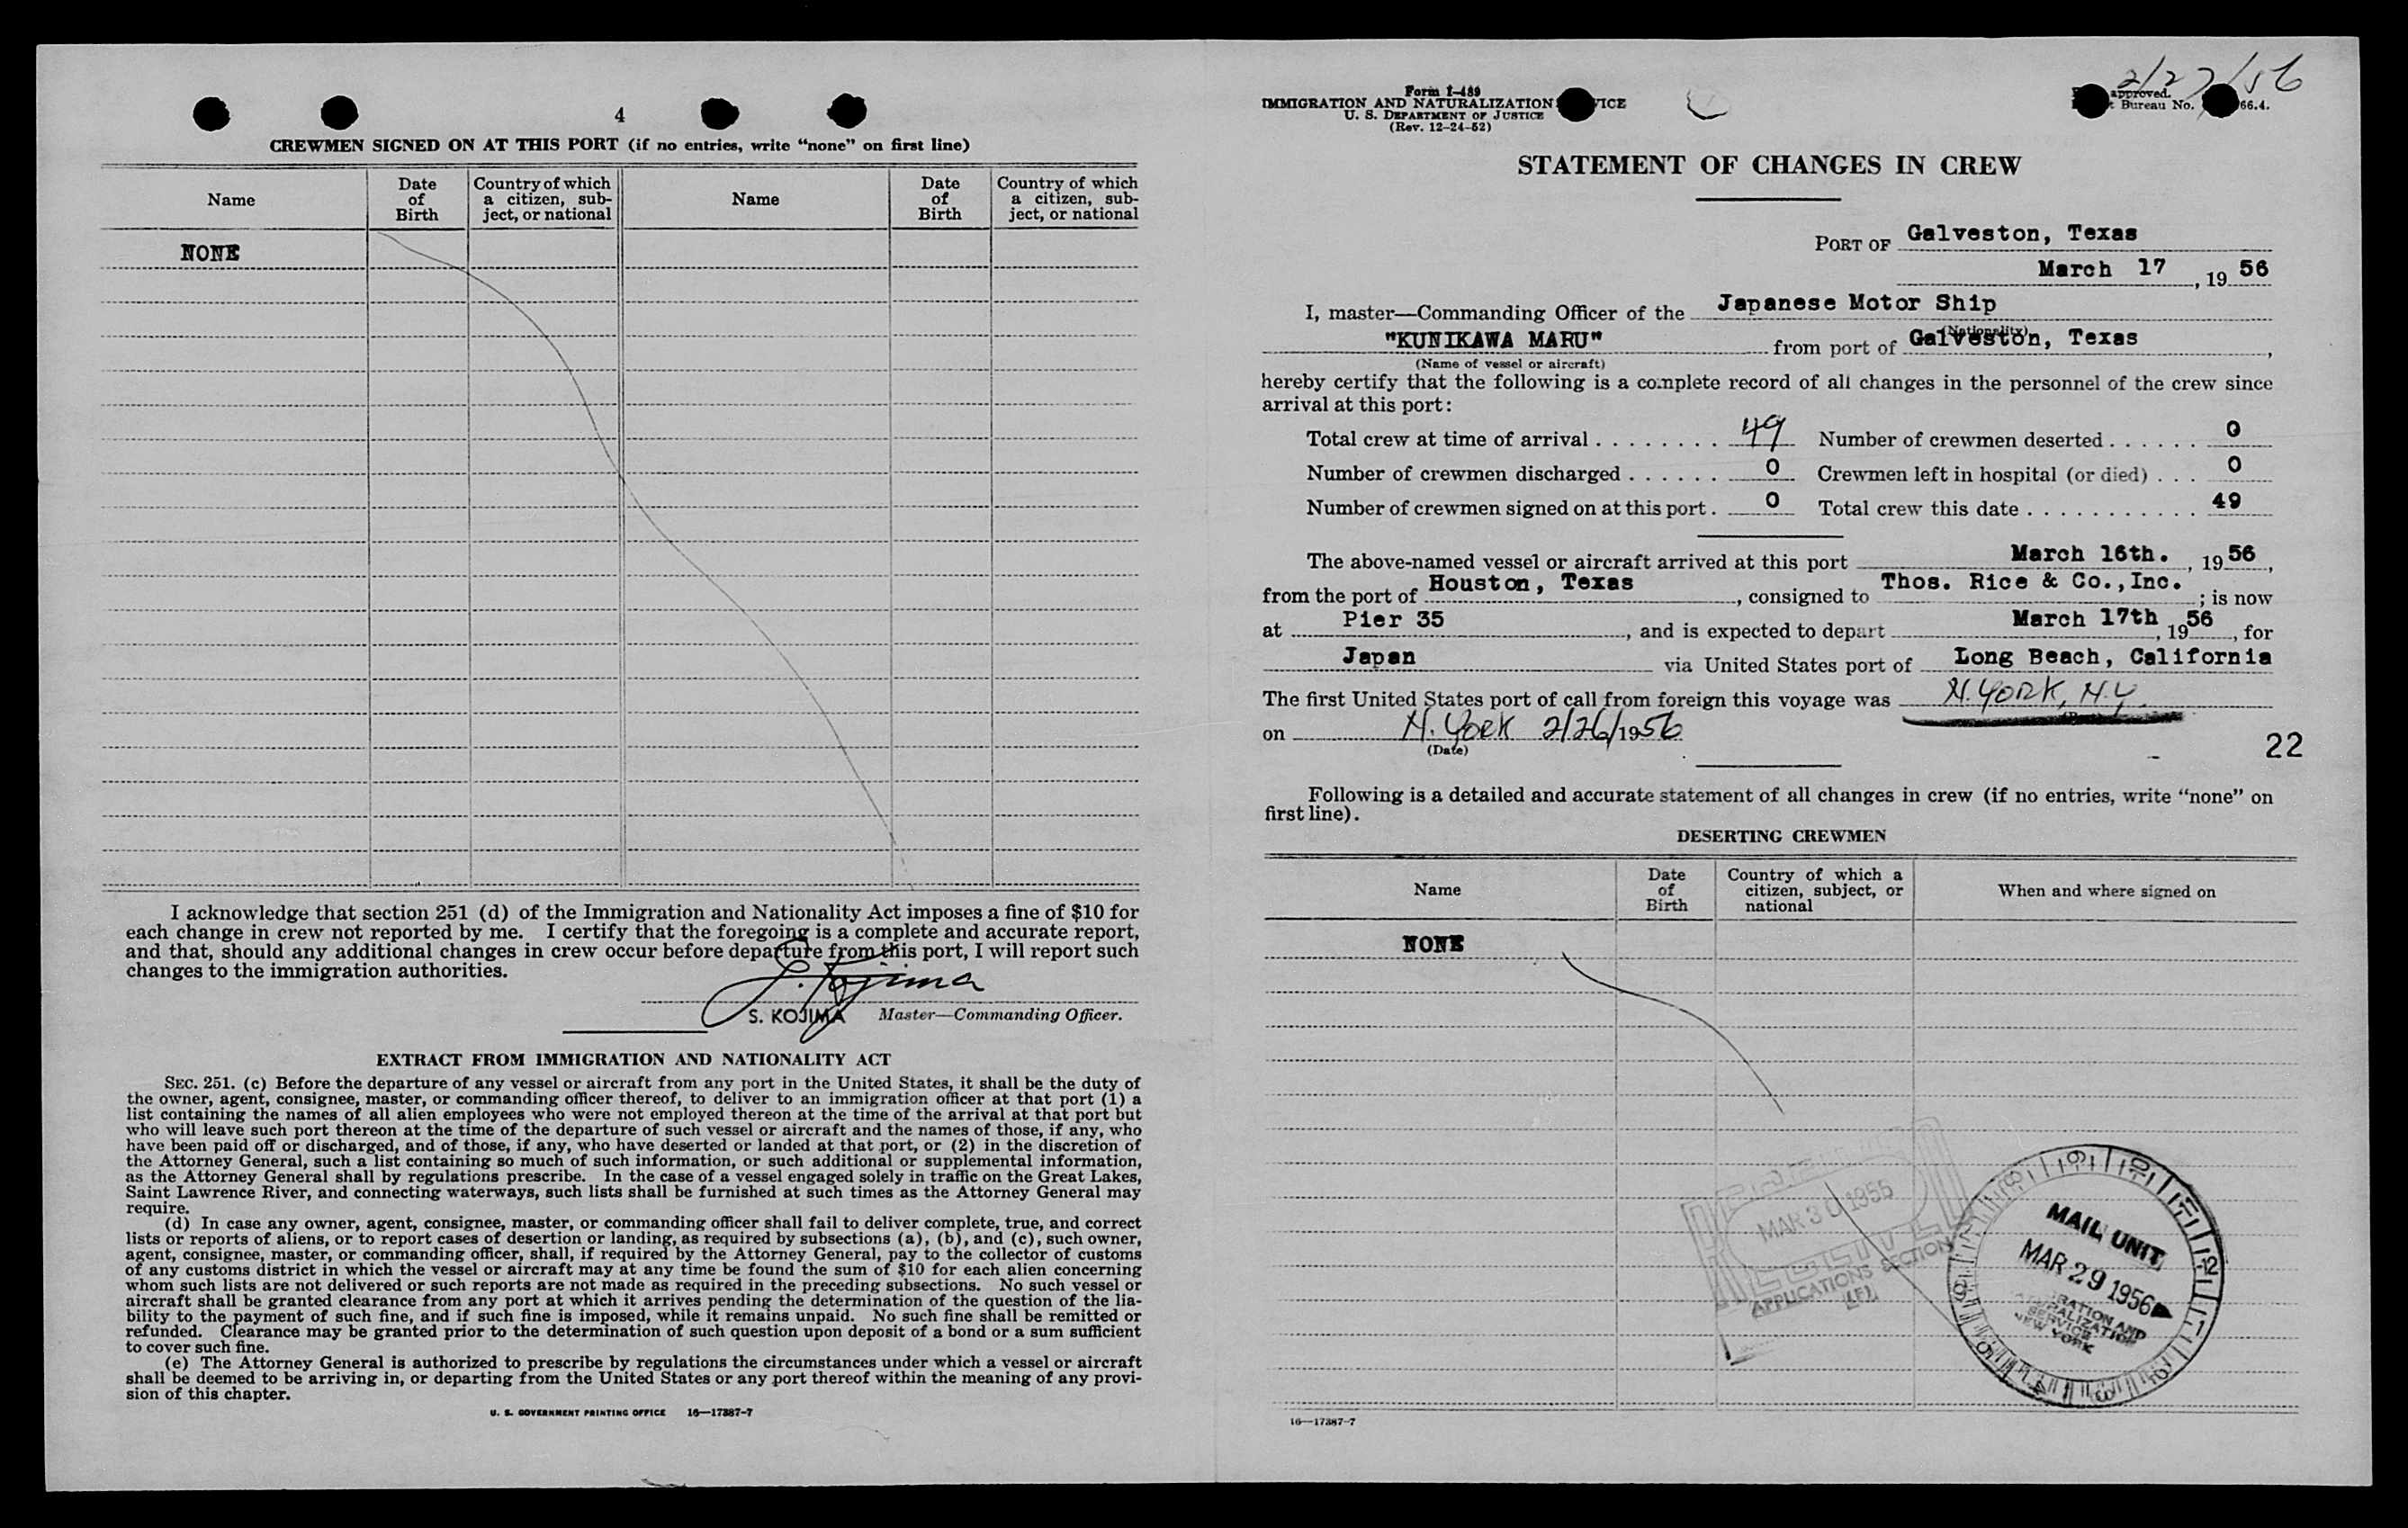 4
CREWMEN SIGNED ON AT THIS PORT (if no entries, write “none” on first line)
Name
Date of Birth
Country of which a citizen, sub-ject, or national
Name
Date of Birth
Country of which a citizen, sub-ject, or national
NONE
I acknowledge that section 251 (d) of the Immigration and Nationality Act imposes a fine of $10 for
each change in crew not reported by me. I certify that the foregoing is a complete and accurate report,
and that, should any additional changes in crew occur before departure from this port, I will report such
changes to the immigration authorities.
S. Kojima
S. KOJIMA Master—Commanding Officer.
EXTRACT FROM IMMIGRATION AND NATIONALITY ACT
SEC. 251. (c) Before the departure of any vessel or aircraft from any port in the United States, it shall be the duty of
the owner, agent, consignee, master, or commanding officer thereof, to deliver to an immigration officer at that port (1) a
list containing the names of all alien employees who were not employed thereon at the time of the arrival at that port but
who will leave such port thereon at the time of the departure of such vessel or aircraft and the names of those, if any, who
have been paid off or discharged, and of those, if any, who have deserted or landed at that port, or (2) in the discretion of
the Attorney General, such a list containing so much of such information, or such additional or supplemental information,
as the Attorney General shall by regulations prescribe. In the case of a vessel engaged solely in traffic on the Great Lakes,
Saint Lawrence River, and connecting waterways, such lists shall be furnished at such times as the Attorney General may
require.
(d) In case any owner, agent, consignee, master, or commanding officer shall fail to deliver complete, true, and correct
lists or reports of aliens, or to report cases of desertion or landing, as required by subsections (a), (b), and (c), such owner,
agent, consignee, master, or commanding officer, shall, if required by the Attorney General, pay to the collector of customs
of any customs district in which the vessel or aircraft may at any time be found the sum of $10 for each alien concerning
whom such lists are not delivered or such reports are not made as required in the preceding subsections. No such vessel or
aircraft shall be granted clearance from any port at which it arrives pending the determination of the question of the lia-
bility to the payment of such fine, and if such fine is imposed, while it remains unpaid. No such fine shall be remitted or
refunded. Clearance may be granted prior to the determination of such question upon deposit of a bond or a sum sufficient
to cover such fine.
(e) The Attorney General is authorized to prescribe by regulations the circumstances under which a vessel or aircraft
shall be deemed to be arriving in, or departing from the United States or any port thereof within the meaning of any provi-
sion of this chapter.
U. S. GOVERNMENT PRINTING OFFICE 16—17387-7
2/27/56
Form I-489
IMMIGRATION AND NATURALIZATION
U. S. DEPARTMENT OF JUSTICE
(Rev. 12-24-52)
approved.
Bureau No. 66.4.
STATEMENT OF CHANGES IN CREW
PORT OF Galveston, Texas
March 17, 1956
I, master—Commanding Officer of the Japanese Motor Ship
(Nationality)
"KUNIKAWA MARU" from port of Galveston, Texas,
(Name of vessel or aircraft)
hereby certify that the following is a complete record of all changes in the personnel of the crew since
arrival at this port:
Total crew at time of arrival . . . . . . . . 49 Number of crewmen deserted . . . . . . 0
Number of crewmen discharged . . . . . . 0 Crewmen left in hospital (or died) . . . 0
Number of crewmen signed on at this port . 0 Total crew this date . . . . . . . . . . . . 49
The above-named vessel or aircraft arrived at this port March 16th., 1956,
from the port of Houston, Texas, consigned to Thos. Rice & Co.,Inc.; is now
at Pier 35, and is expected to depart March 17th, 1956, for
Japan via United States port of Long Beach, California
The first United States port of call from foreign this voyage was N. YORK, N.Y.
on N. York 2/26/1956
(Date)
22
Following is a detailed and accurate statement of all changes in crew (if no entries, write “none” on
first line).
DESERTING CREWMEN
Name
Date of Birth
Country of which a citizen, subject, or national
When and where signed on
NONE
MAR 30 1956
RECEIVED
APPLICATIONS SECTION
MAIL UNIT
MAR 29 1956
NEW YORK
16—17387-7